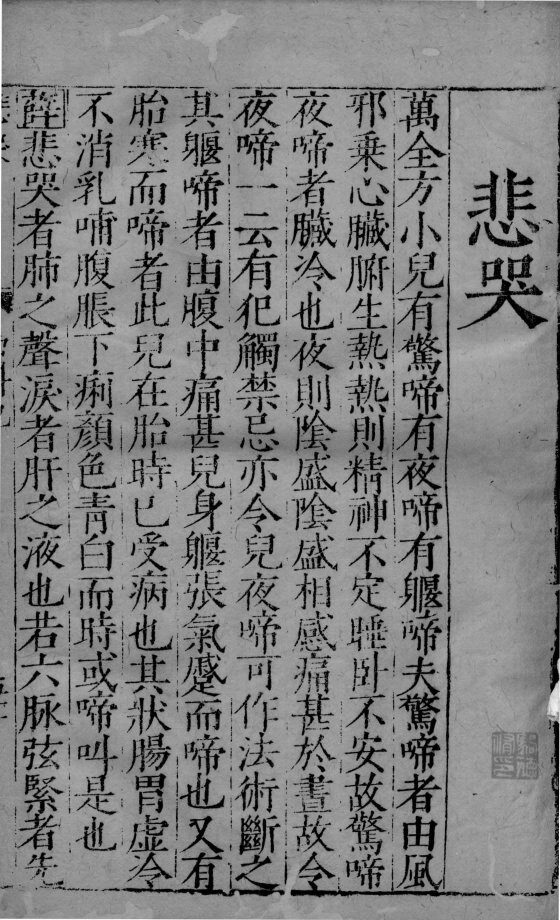 悲哭
萬全方小兒有驚啼有夜啼有軀啼夫驚啼者由風
邪乗心臓腑生熱熱則精神不定睡卧不安故驚啼
夜啼者臓冷也夜則陰盛陰盛相感痛甚於晝故令
夜啼一云有犯觸禁忌亦令兒夜啼可作法術斷之
其軀啼者由腹中痛甚兒身軀張氣蹙而啼也又有
胎寒而啼者此兒在胎時已受病也其狀腸胃虚冷
不消乳哺腹脹下痢顔色青白而時或啼叫是也
薛悲哭者肺之聲淚者肝之液也若六脉弦緊者先